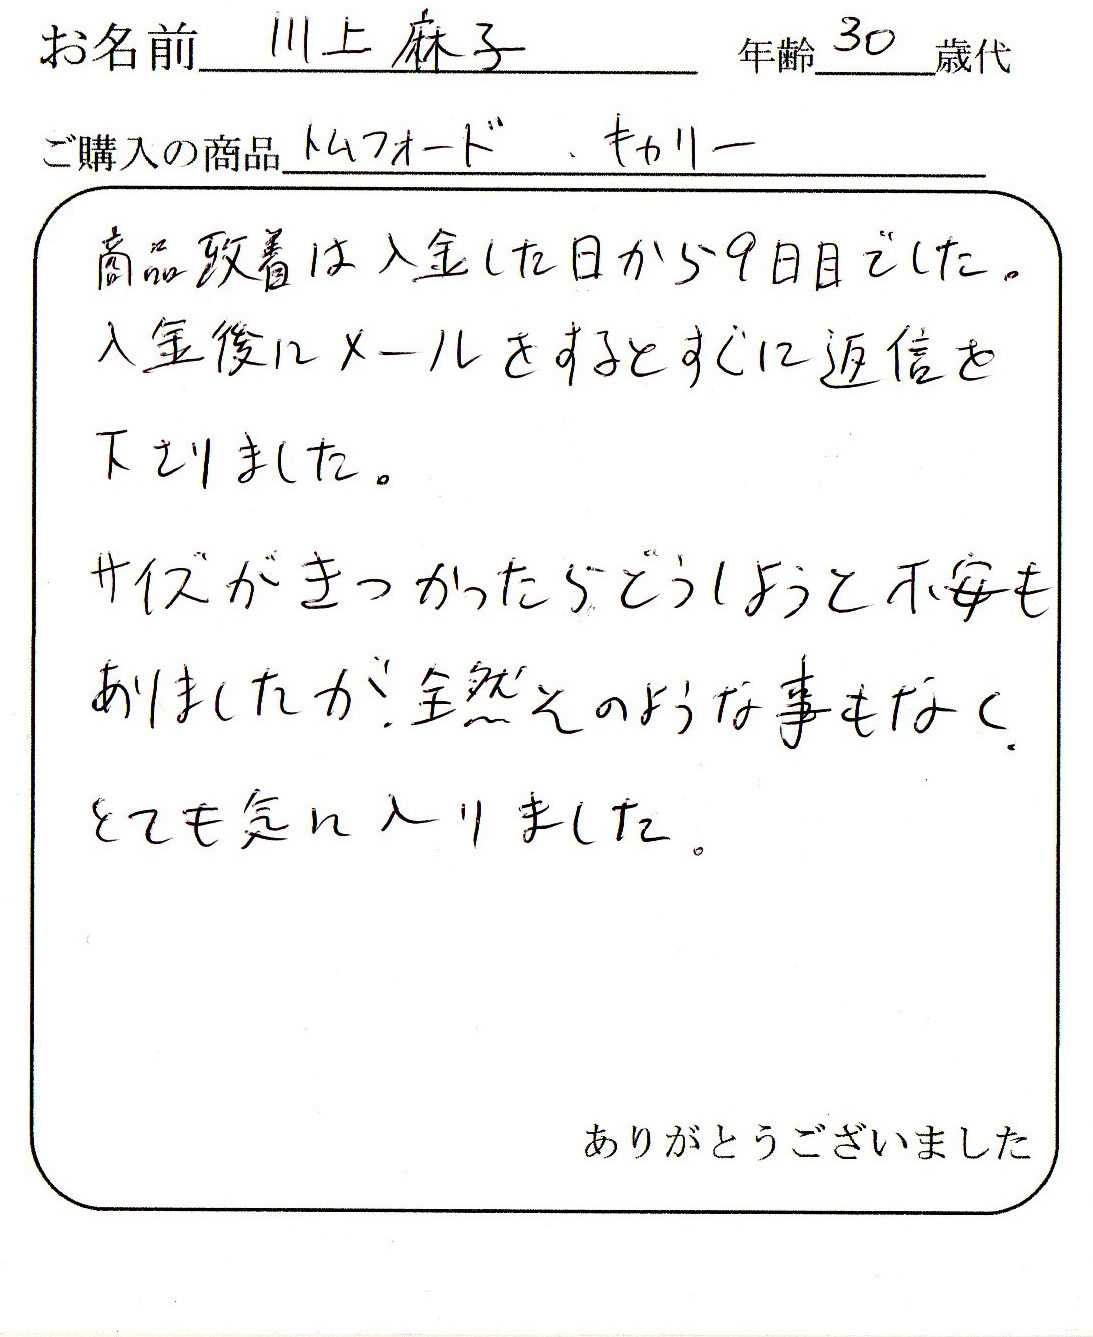 お名前 川上麻子 年齢 30 歳代
ご購入の商品 トムフォード、キャリー
商品致着は入金した日から9日目でした。
入金後にメールをするとすぐに返信を
下さりました。
サイズがきつかったらどうしようと不安も
ありましたが、全然そのような事もなく、
とても気に入りました。
ありがとうございました